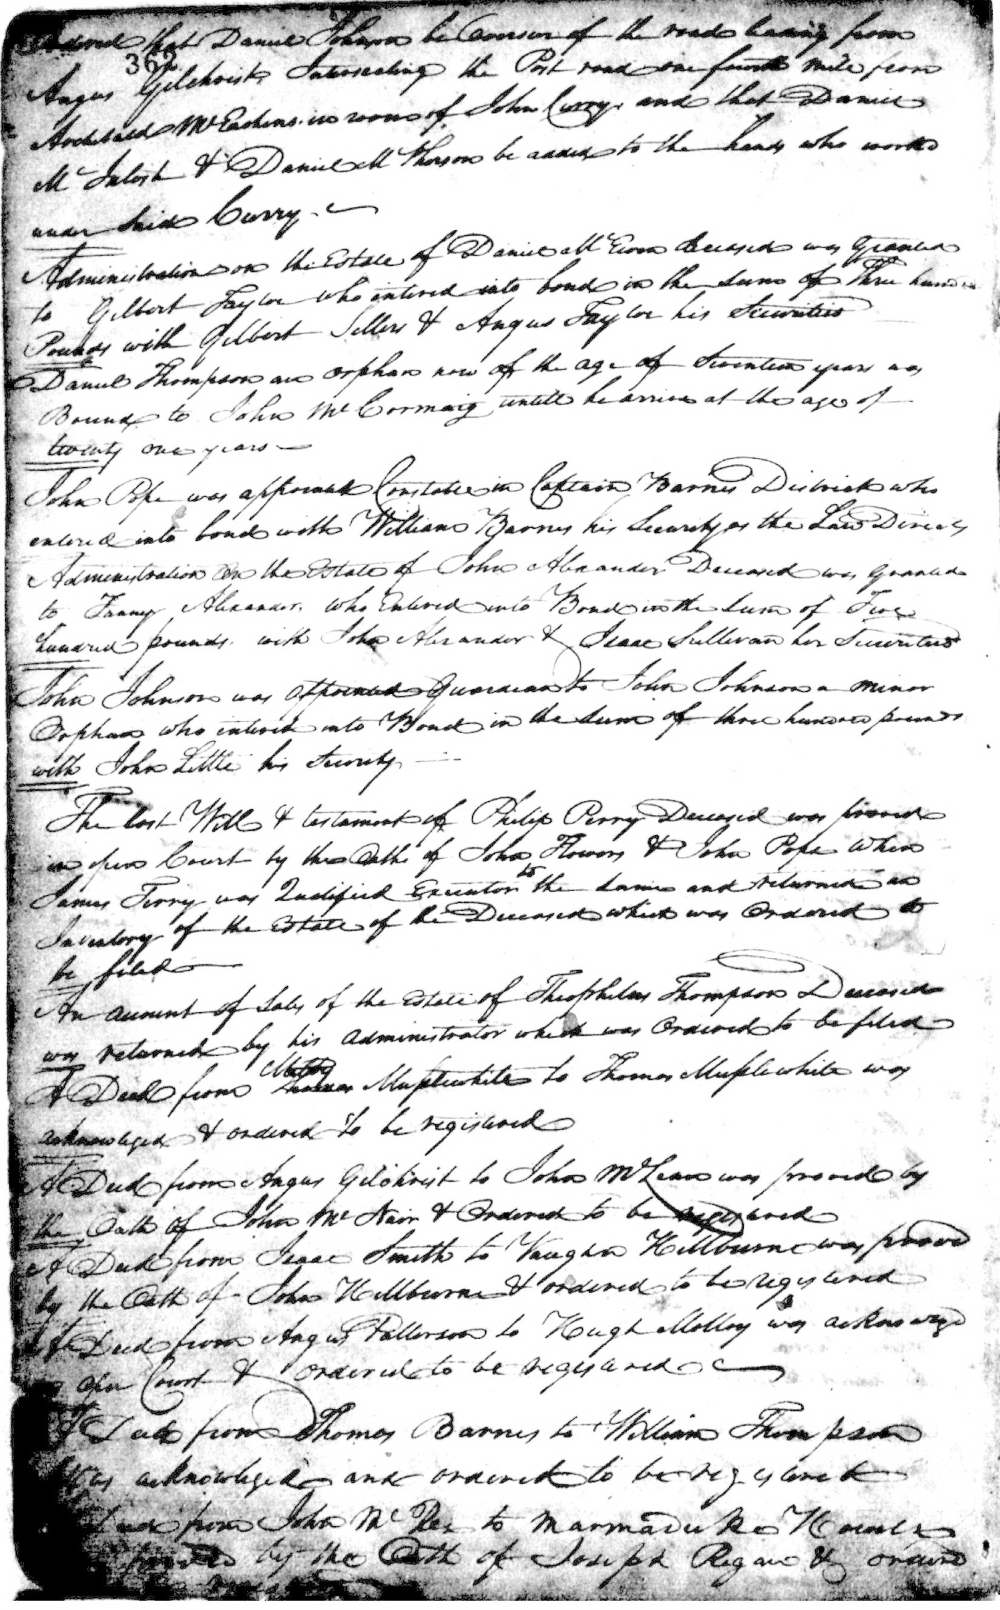 Ordered that Daniel Johnson be Overseer of the road leading from
362
Angus Gilchrists Intersecting the Post road one fourth mile from
Archibald McEacherns in room of John Curry and that Daniel
Mc Intosh & Daniel McPherson be added to the hands who works
under said Curry.
Administration on the Estate of Daniel McEwen deceased was Granted
to Gilbert Taylor who entered into bond in the sum of Three hundred
Pounds with Gilbert Sellers & Angus Taylor his Securities
Daniel Thompson an orphan now of the age of Seventeen years was
Bound to John McCormaig untill he arrives at the age of
twenty one years
John Pope was appointed Constable in Captain Barnes District who
entered into bond with William Barnes his Security as the Law Directs
Administration on the Estate of John Alexander Deceased was Granted
to Fanney Alexander. who Entered into Bond in the Sum of Two
hundred pounds. with John Alexander & Isaac Sullivan her Securities
John Johnson was appointed Guardian to John Johnson a minor
Orphan who entered into Bond in the Sum of three hundred pounds
with John Little his Security
The last Will & testament of Philip Perry Deceased was proved
in open Court by the Oaths of John Flowers & John Pope When
James Terry was Qualified Executor to the same and returned an
Inventory of the Estate of the Deceased which was Ordered to
be filed
An account of Sales of the Estate of Theophelus Thompson Deceased
was returned by his administrator which was Ordered to be filed
A Deed from Musslewhite to Thomas Musslewhite was
acknowleged & ordered to be registered
A Deed from Angus Gilchrist to John McLean was proved by
the Oath of John McNair & Ordered to be registered
A Deed from Isaac Smith to Vaughn Hillburne was proved
by the Oath of John Hillburne & ordered to be registered
A Deed from Angus Patterson to Hugh Molloy was acknowleged
open Court & ordered to be registered
A Deed from Thomas Barnes to William Thompson
was acknowleged and ordered to be registered
Deed from John McRee to Marmaduke
proved by the Oath of Joseph Regan & ordered